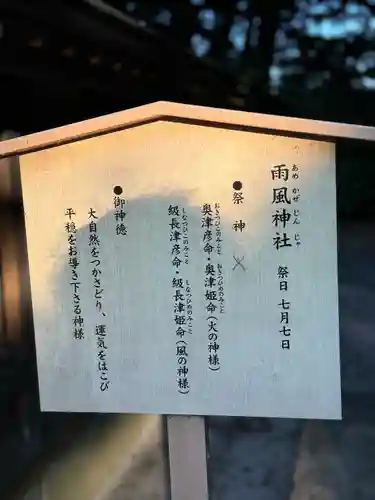 雨風神社 祭日 七月七日
あめ かぜ じん じゃ
●祭神
奥津彦命・奥津姫命(火の神様)
おきつひこのみこと おきつひめのみこと
級長津彦命・級長津姫命(風の神様)
しなつひこのみこと しなつひめのみこと
●御神徳
大自然をつかさどり、運気をはこび
平穏をお導き下さる神様